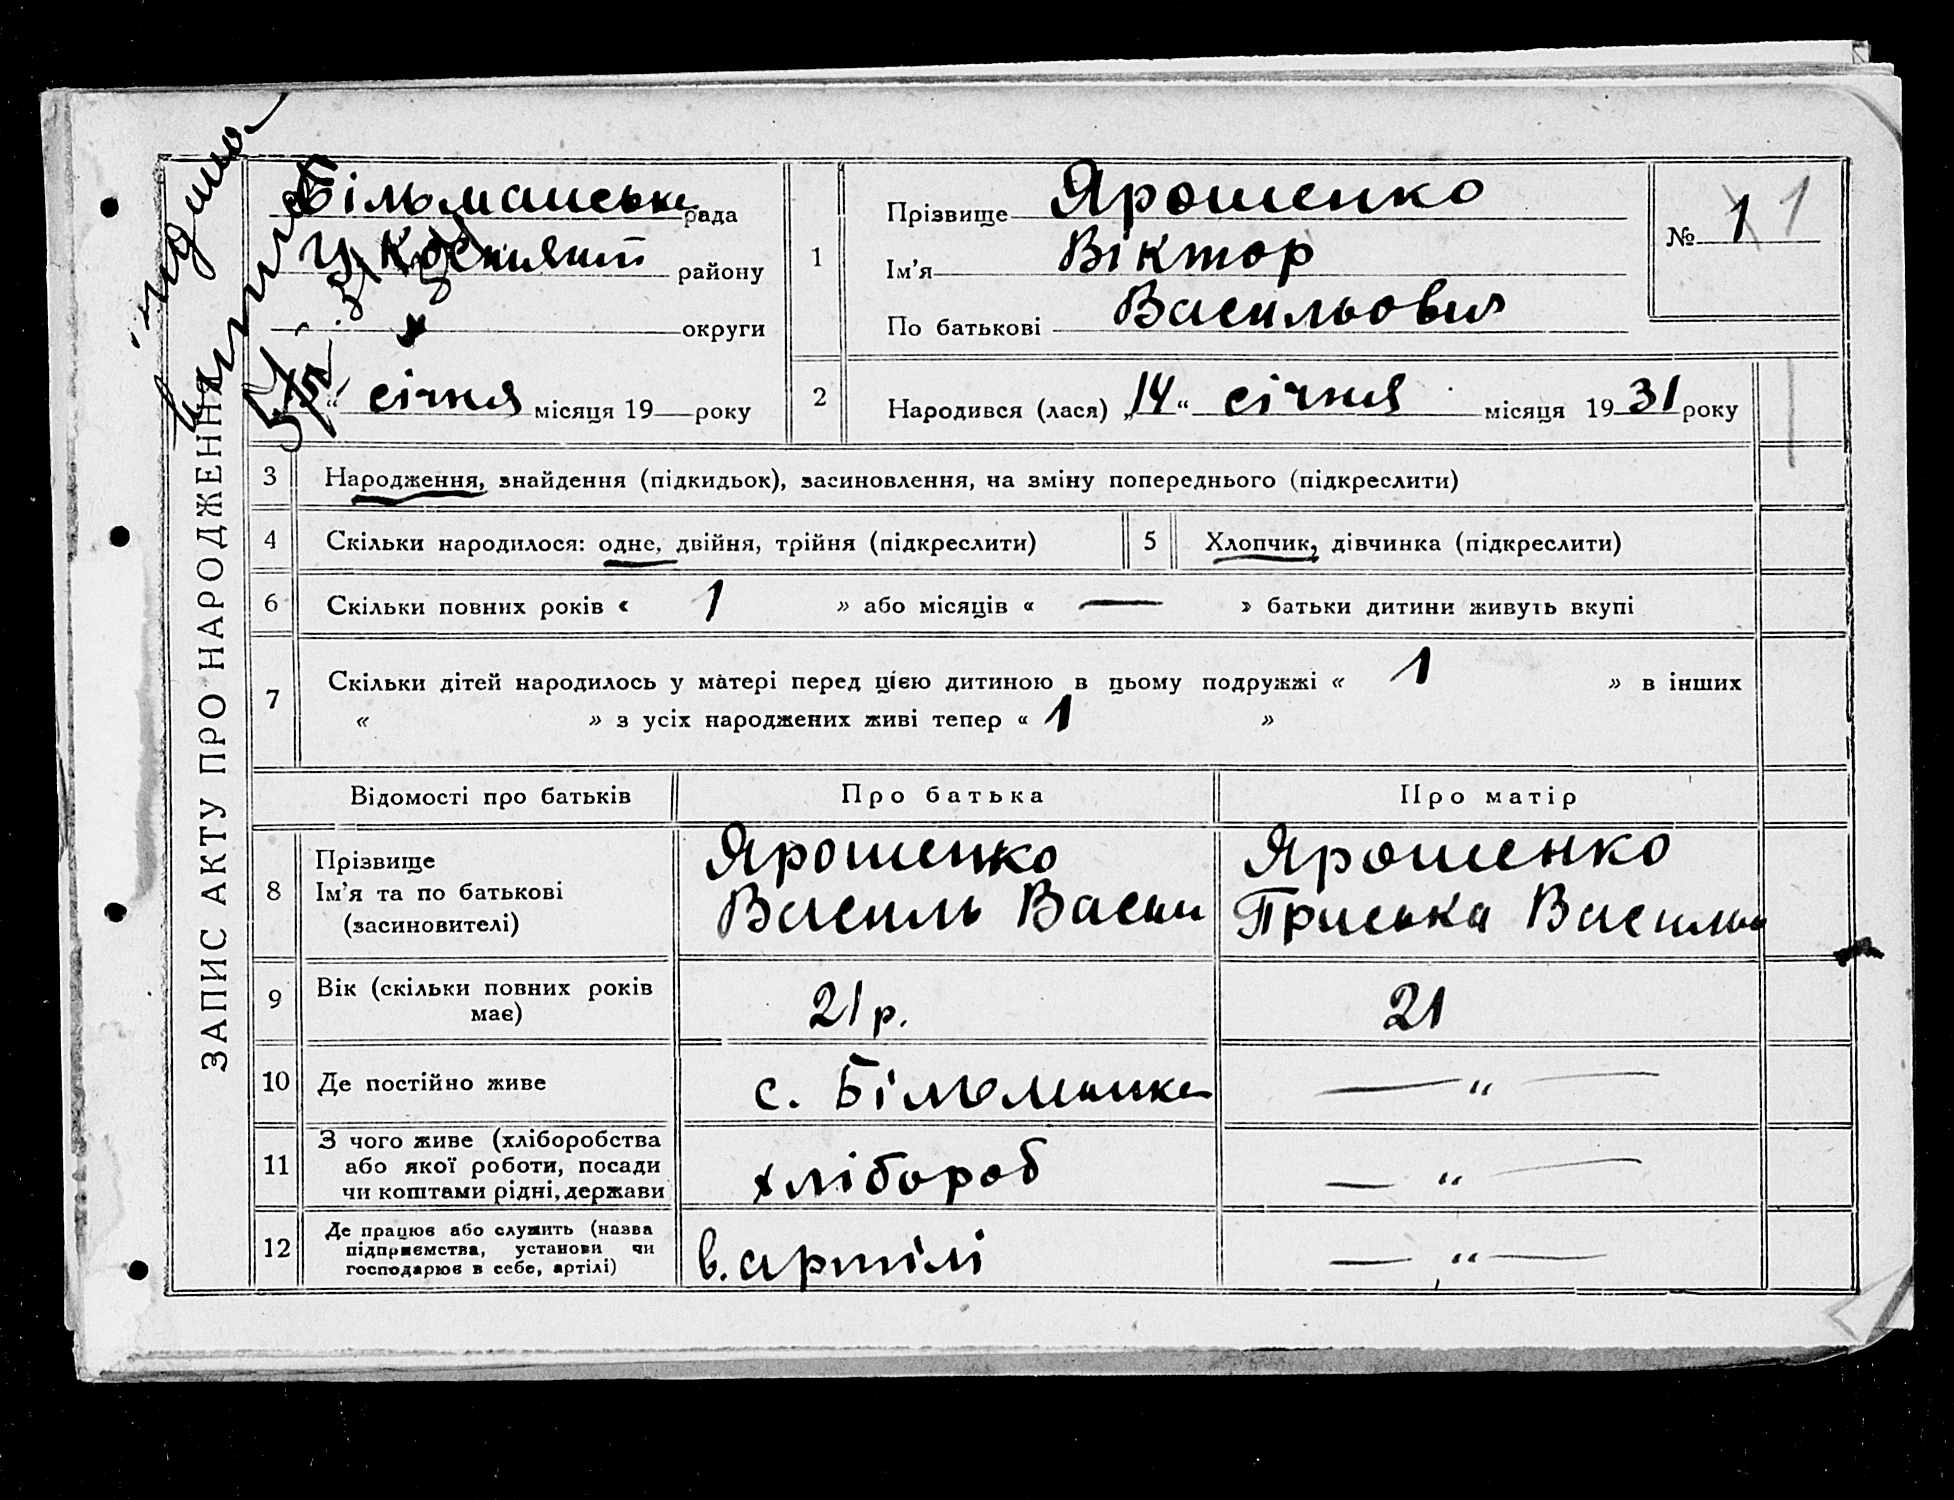 ЗАПИС АКТУ ПРО НАРОДЖЕННЯ
Більманська рада
району
округи
“ січня місяця 19 року
1
Прізвище Ярошенко
Ім’я Віктор
По батькові Васильович
№ 1 1
2
Народився (лася) „14“ січня місяця 1931 року
3 Народження, знайдення (підкидьок), засиновлення, на зміну попереднього (підкреслити)
4 Скільки народилося: одне, двійня, трійня (підкреслити) 5 Хлопчик, дівчинка (підкреслити)
6 Скільки повних років « 1 » або місяців « — » батьки дитини живуть вкупі
7 Скільки дітей народилось у матері перед цією дитиною в цьому подружжі « 1 » в інших
« » з усіх народжених живі тепер « 1 »
Відомості про батьків Про батька Про матір
8 Прізвище
Ім’я та по батькові
(засиновителі)
Ярошенко
Василь Васи
Ярошенко
Приська Василь
9 Вік (скільки повних років
має)
21 р. 21
10 Де постійно живе с. Більманка — “ —
11 З чого живе (хліборобства
або якої роботи, посади
чи коштами рідні, держави
хлібороб — “ —
12 Де працює або служить (назва
підприємства, установи чи
господарює в себе, артілі)
в. артілі — “ —